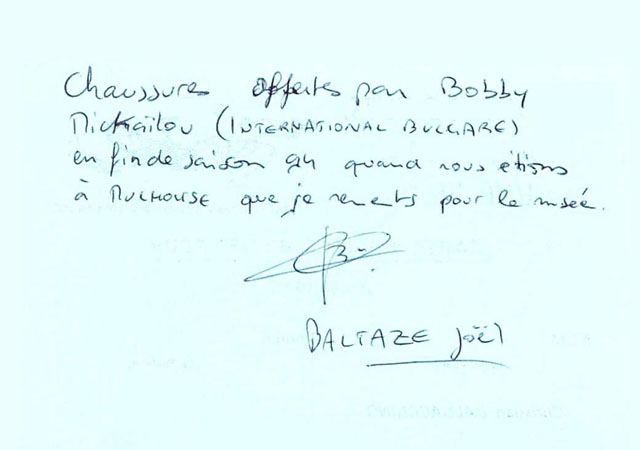 Chaussures offertes par Bobby
Mickaïlov (INTERNATIONAL BULGARE)
en fin de saison 94 quand nous étions
à MULHOUSE que je remets pour le musée.
BALTAZE Joël